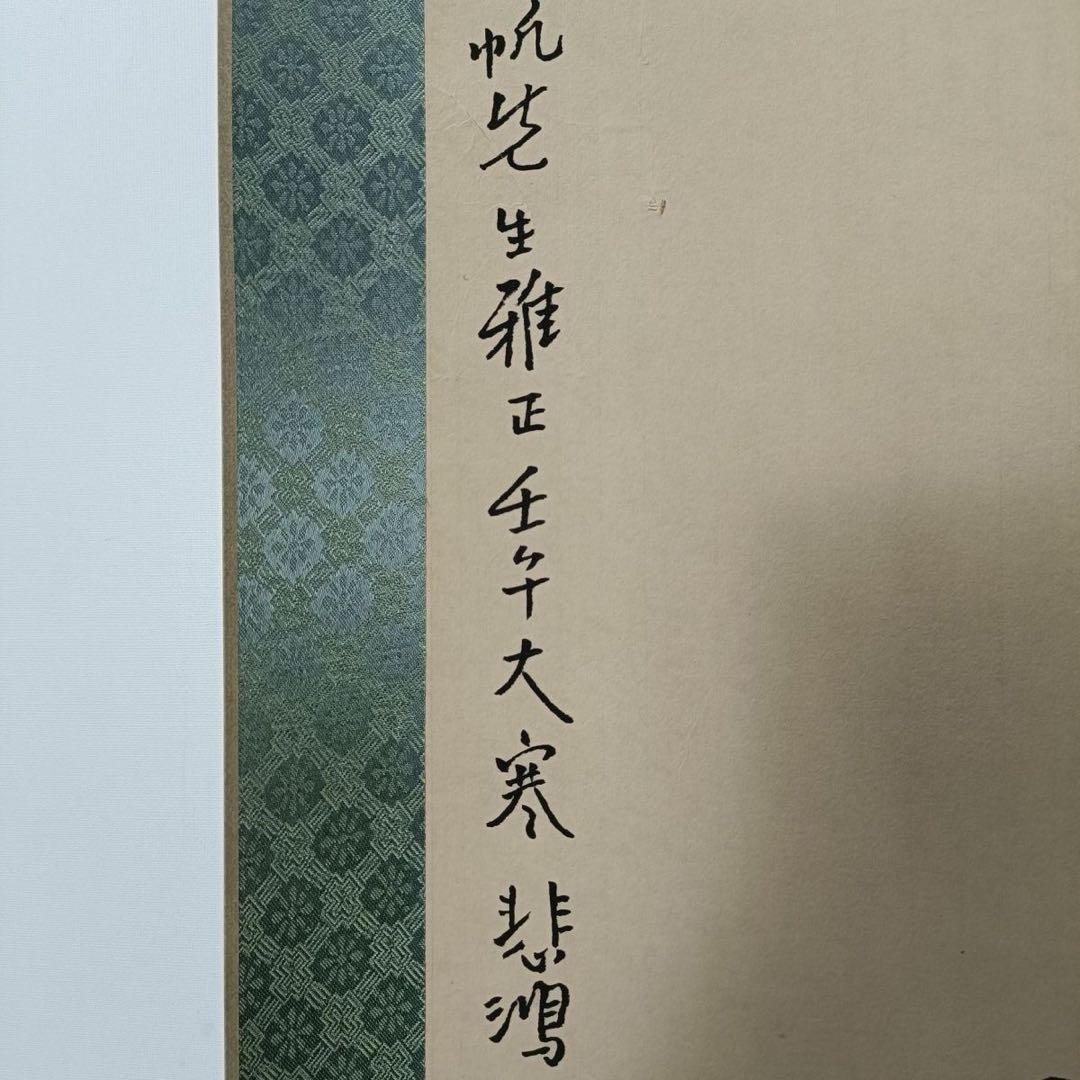 帆先生雅正壬午大寒悲鴻